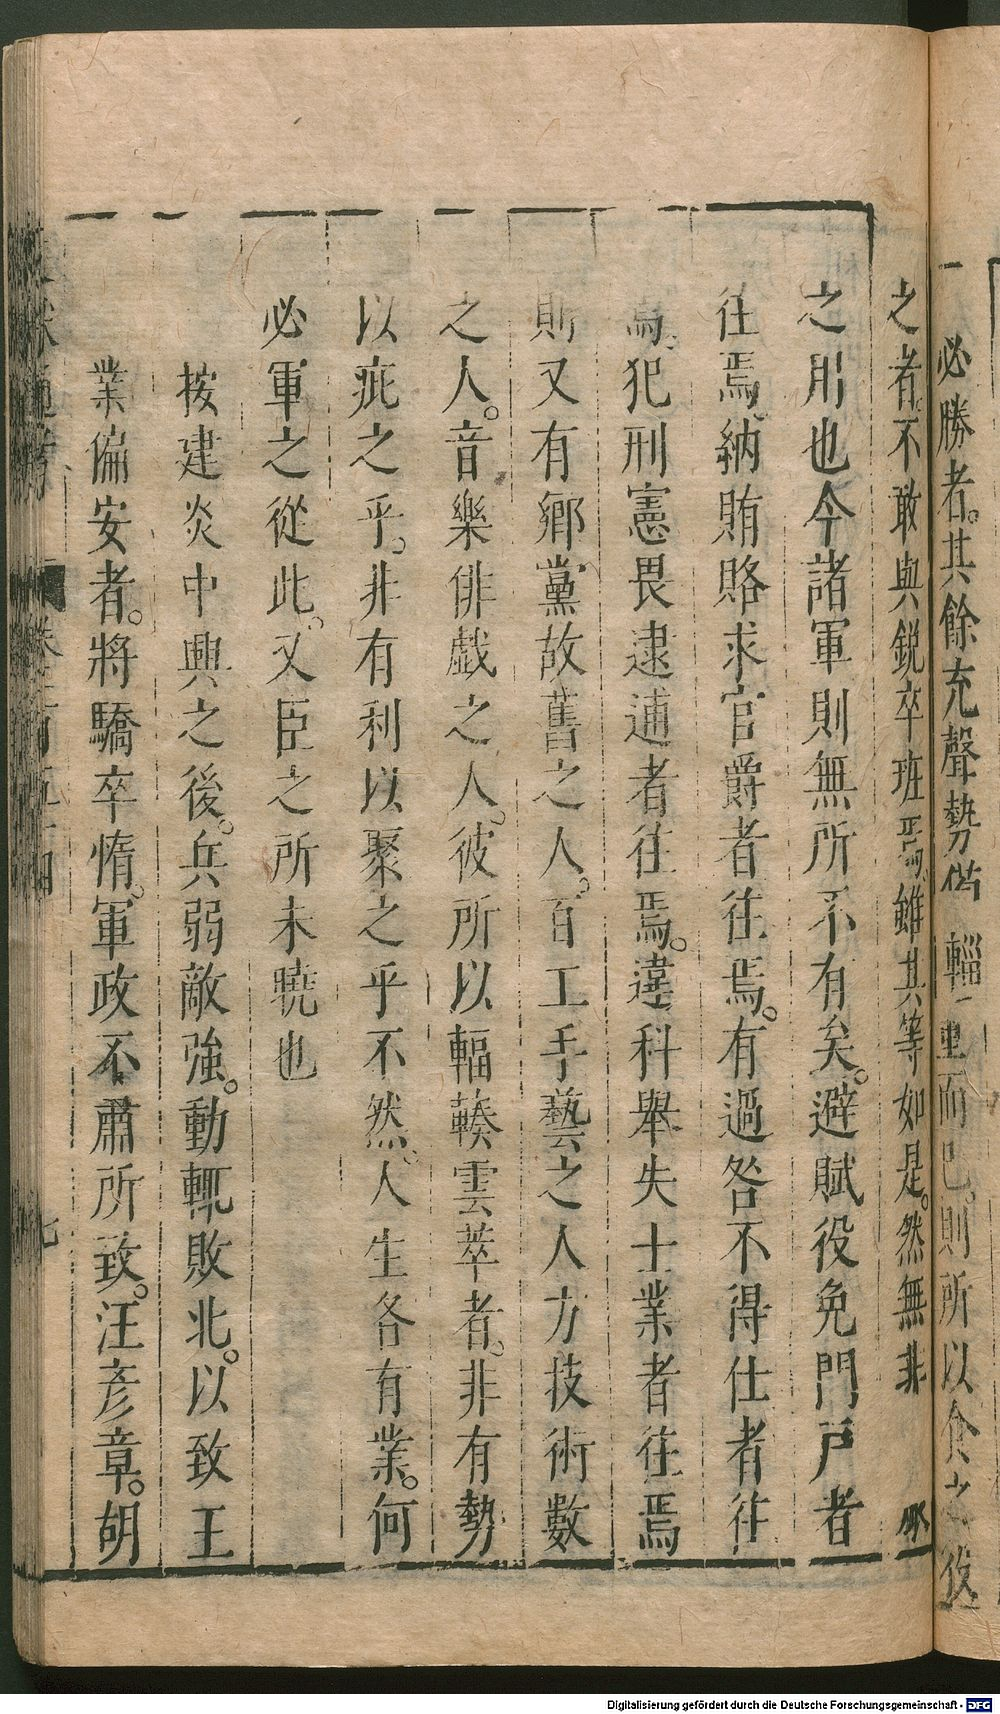 必勝者。其餘充聲勢備輜重而已。則所以食之
之者。不敢與銳卒班焉。雖其等如是。然無非
之用也今諸軍則無所不有矣。避賦役免門戶者
往焉。納賄賂求官爵者往焉。有過咎不得仕者往
焉。犯刑憲畏逮逋者往焉。違科舉失士業者往焉
則又有鄉黨故舊之人。百工手藝之人方技術數
之人。音樂俳戲之人。彼所以輻輳雲萃者。非有勢
以疵之乎。非有利以聚之乎不然。人生各有業。何
必軍之從此。又臣之所未曉也
按建炎中興之後。兵弱敵強。動輒敗北。以致王
業偏安者。將驕卒惰。軍政不肅所致。汪彥章。胡
通考 卷一百五十四 七
Digitalisierung gefördert durch die Deutsche Forschungsgemeinschaft - DFG